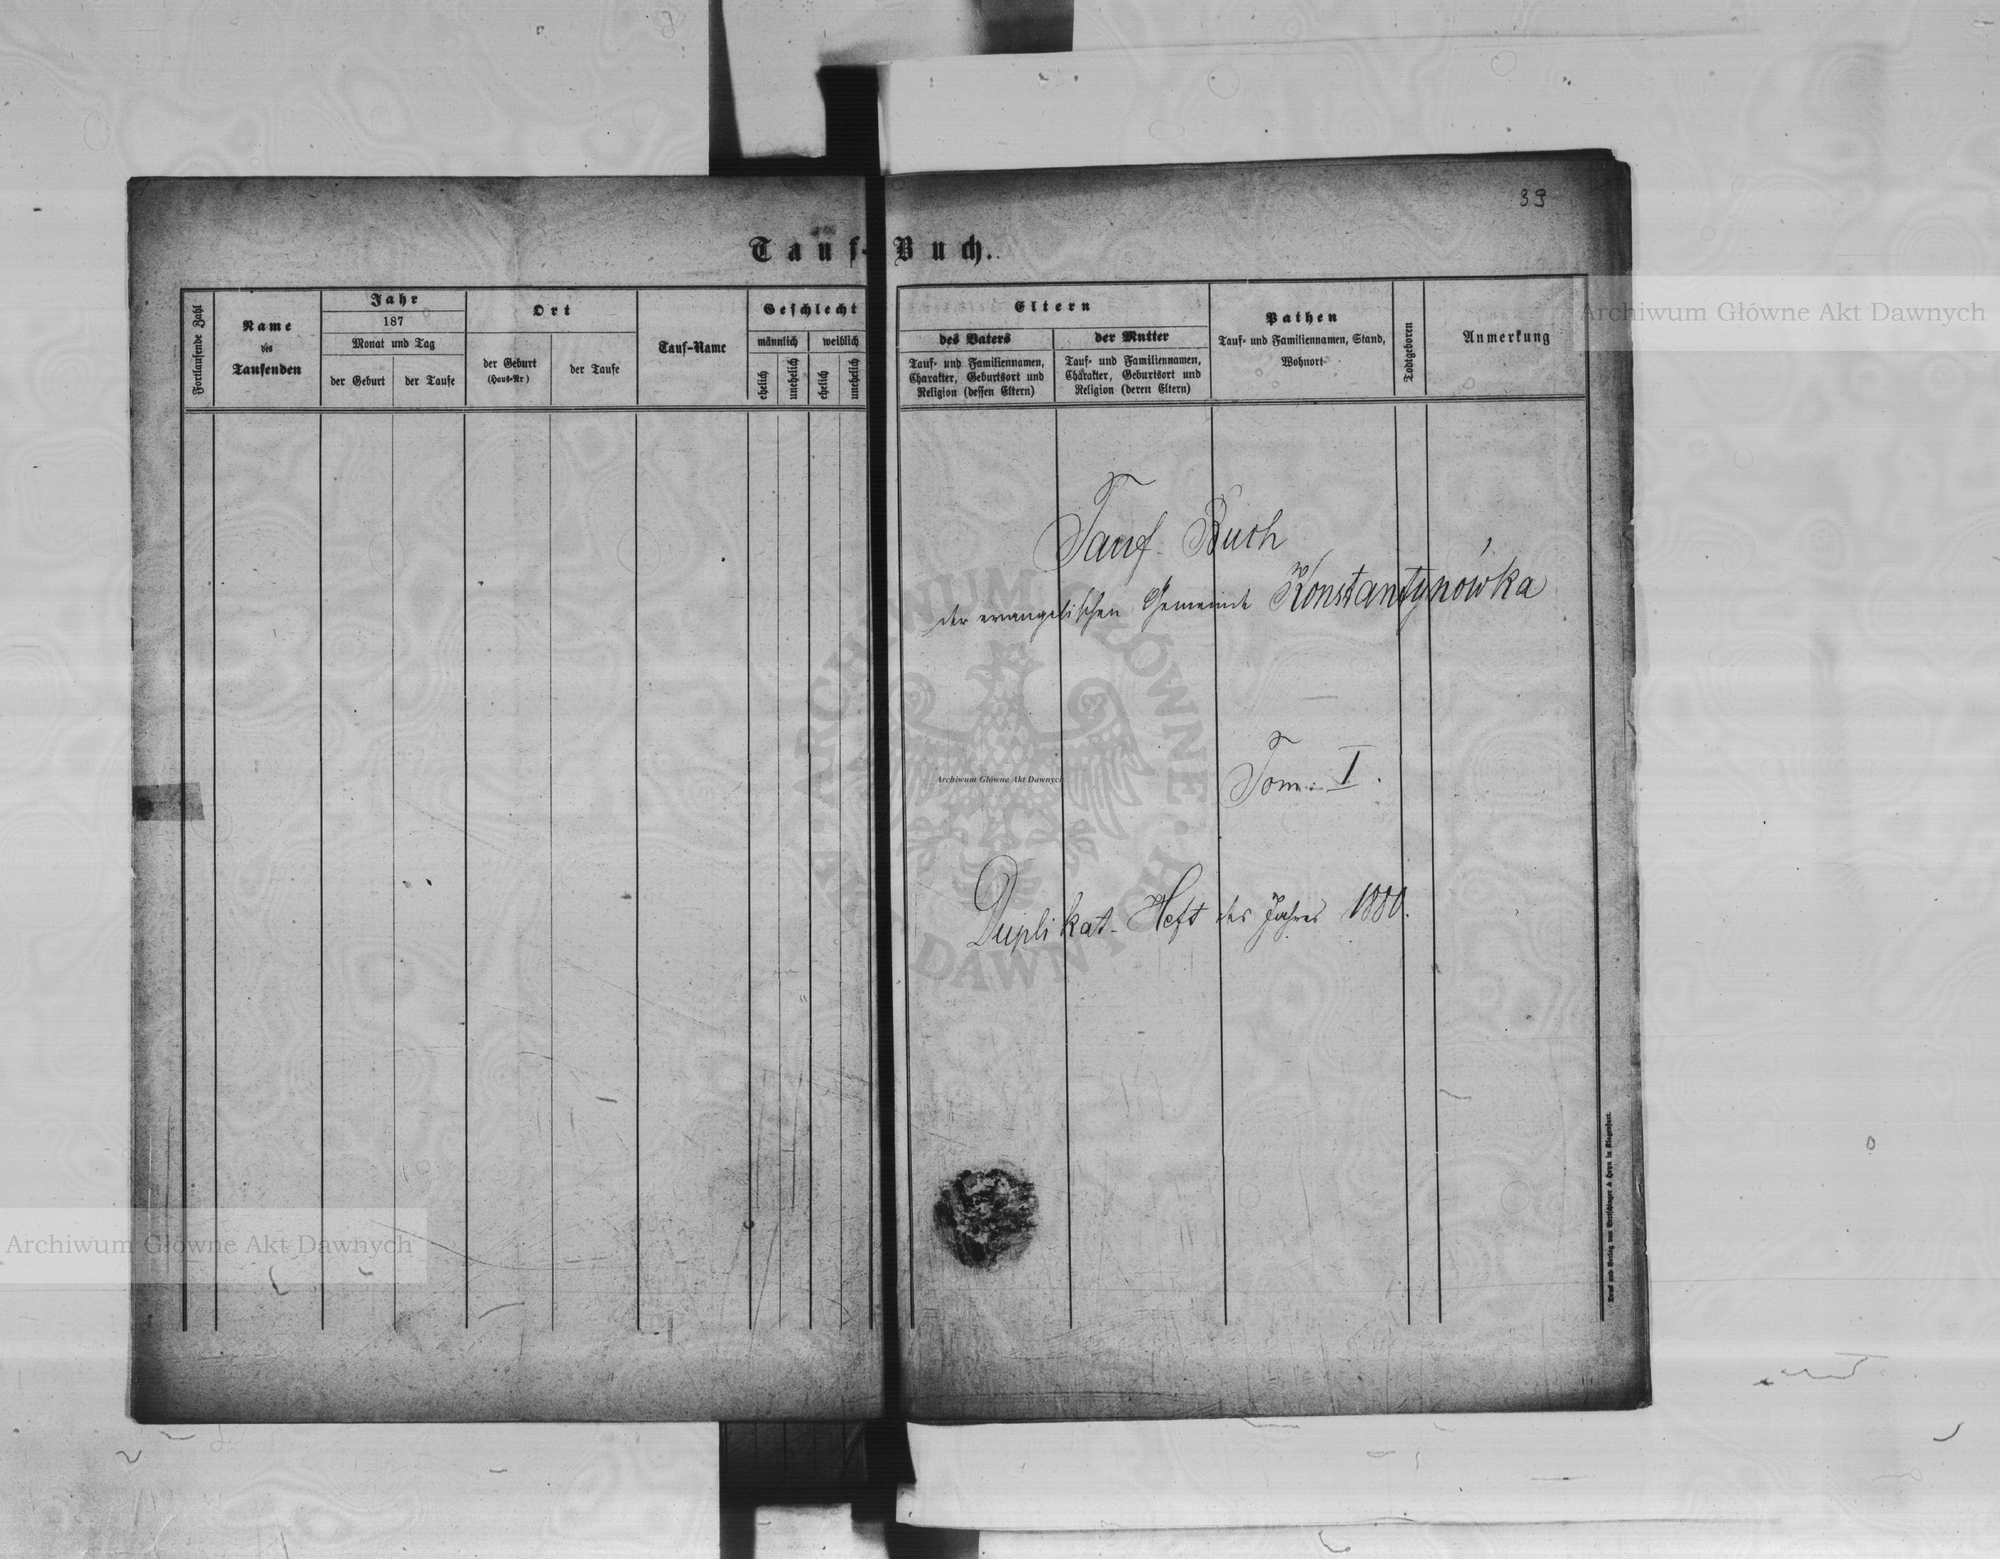 39
Tauf-Buch.
Fortlaufende Zahl
Name
des
Taufenden
Jahr
187
Monat und Tag
der Geburt
der Taufe
Ort
der Geburt
(Haus-Nr)
der Taufe
Tauf-Name
Geschlecht
männlich
weiblich
ehelich
unehelich
ehelich
unehelich
Eltern
des Vaters
Tauf- und Familiennamen,
Charakter, Geburtsort und
Religion (dessen Eltern)
der Mutter
Tauf- und Familiennamen,
Charakter, Geburtsort und
Religion (deren Eltern)
Pathen
Tauf- und Familiennamen, Stand,
Wohnort
Todtgeboren
Anmerkung
Tauf-Buch
der evangelischen Gemeinde Konstantynówka
Tom. I.
Duplikat-Heft des Jahres 1880.
Archiwum Główne Akt Dawnych
Archiwum Główne Akt Dawnych
Archiwum Główne Akt Dawnych
ARCHIWUM GŁÓWNE
AKT DAWNYCH